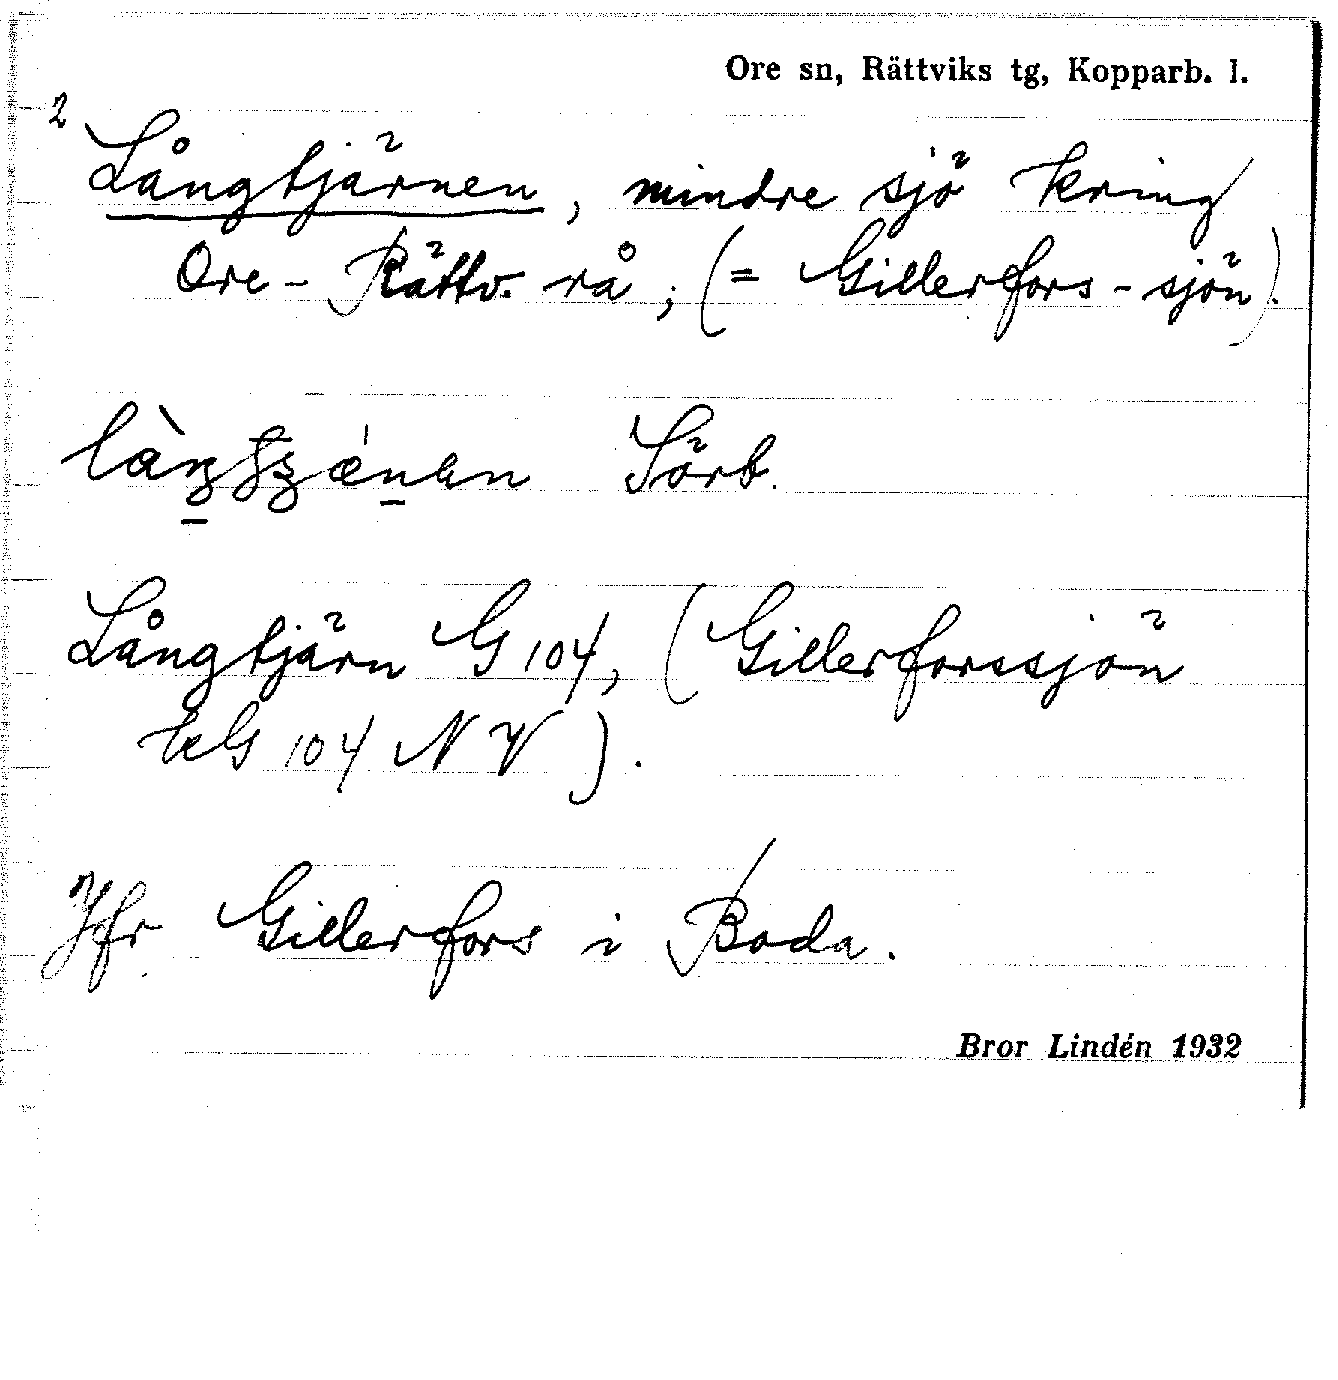 Ore sn, Rättviks tg, Kopparb. l.
2 Långtjärnen, mindre sjö kring
Ore - Rättv. rå; (= Gillerfors-sjön).
Sörb.
Långtjärn G 104, (Gillerforssjön
kG 104 NV).
Jfr Gillerfors i Boda.
Bror Lindén 1932